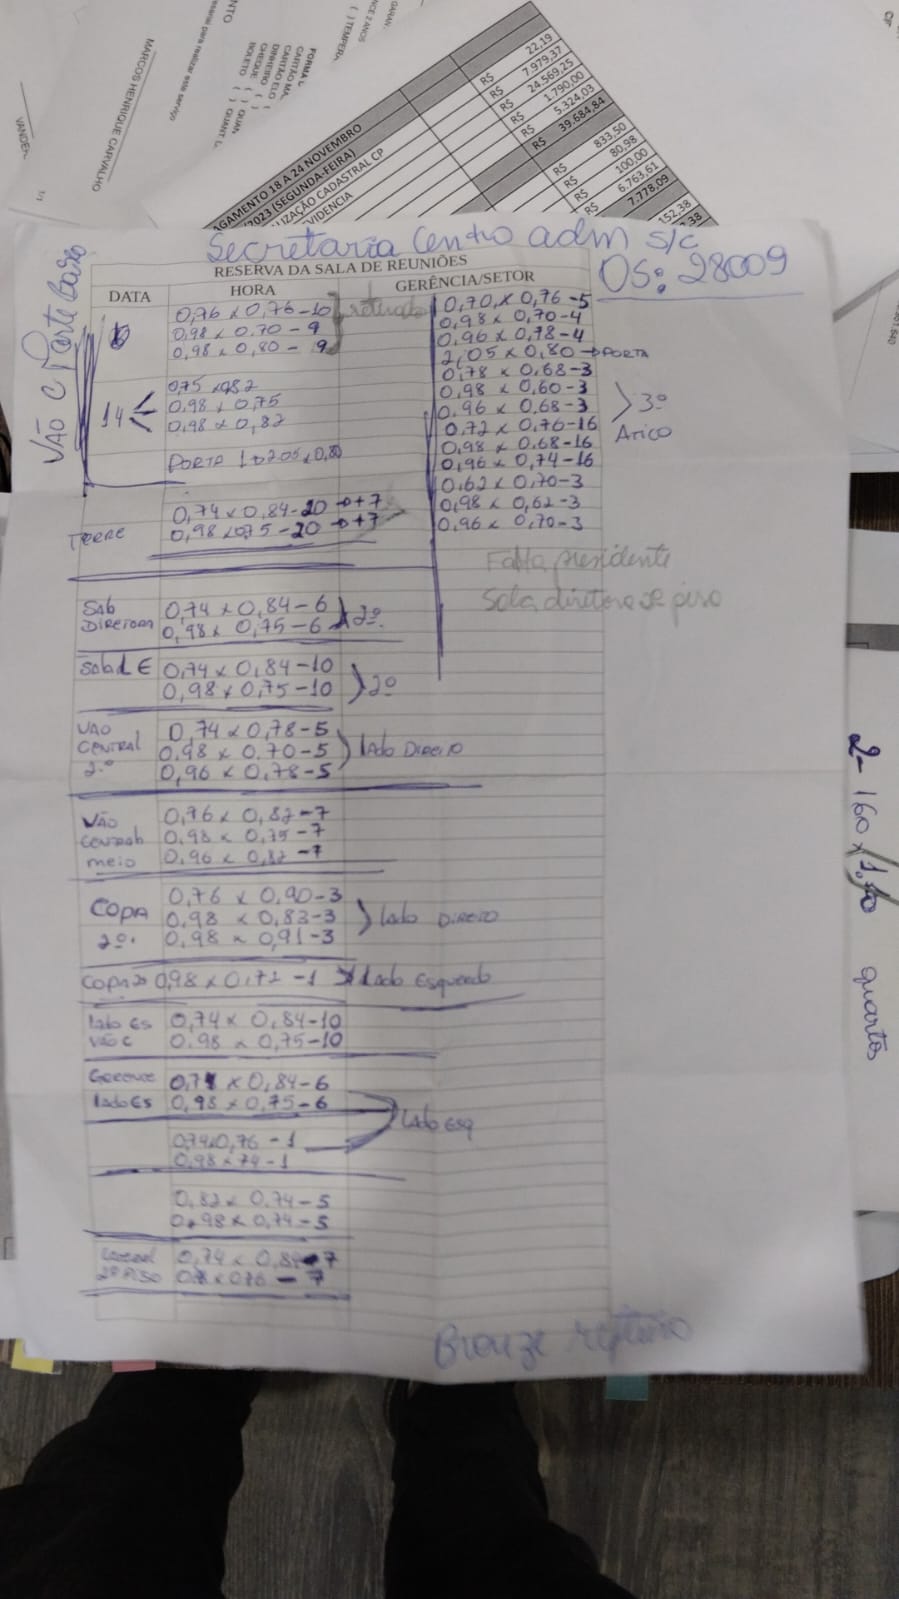 NTO
essário para realizar este serviço
MARCOS HENRIQUE CARVALHO
1/1
CARTÃO ELO (
DINHEIRO (
CHEQUE (
BOLETO ( ) QUANT
( ) TEMPERA
AGAMENTO 18 A 24 NOVEMBRO
/2023 (SEGUNDA-FEIRA)
LIZAÇÃO CADASTRAL CP
VIDENCIA
22,19
R$ 7.979,37
R$ 24.569,25
R$ 1.790,00
R$ 5.324,03
R$ 39.684,84
833,50
R$ 80,98
R$ 100,00
R$ 6.763,61
7.778,09
152,38
Secretaria Centro adm s/c
OS: 28009
RESERVA DA SALA DE REUNIÕES
DATA HORA GERÊNCIA/SETOR
VÃO C Parte Baixo
0,76 x 0,76-10
0,98 x 0.70-9
0,98 x 0,80-9
14
0,98 x 0,75
0,98 x 0,82
PORTA 1
TERRE
0,74 x 0,84-20 +7
0,98 x 075-20 +7
0,70 x 0,76-5
0,98 x 0,70-4
0,96 x 0,78-4
2,05 x 0,80 → PORTA
0,78 x 0,68-3
0,98 x 0,60-3
0,96 x 0,68-3
3º
0,72 x 0,76-16
0,98 x 0,68-16
0,96 x 0,74-16
0,62 x 0,70-3
0,98 x 0,62-3
0,96 x 0,70-3
Falta presidente
DIRETORA
0,74 x 0,84-6
0,98 x 0,75-6
2º
0,74 x 0,84-10
0,98 x 0,75-10
2º
VAO CENTRAL 2.º
0,74 x 0,78-5
0.98 x 0.70-5
0,96 x 0,78-5
lado DIREITO
VÃO CENTRAL meio
0,76 x 0,82-7
0,98 x 0,75-7
0.96 x 0,82-7
COPA 2º.
0,76 x 0,90-3
0,98 x 0,83-3
0,98 x 0,91-3
lado DIREITO
0,98 x 0,72-1 lado Esquerdo
lado Es VÃO C
0,74 x 0,84-10
0.98 x 0,75-10
Gerente lado Es
0,74 x 0,84-6
0,98 x 0,75-6
lado Esq
0,74x0,76-1
0,98 x 74-1
0,82 x 0.74-5
0,98 x 0,74-5
2º PISO
0,74 x 0,84-7
Bronze
2- 160 x 1.40 quartos